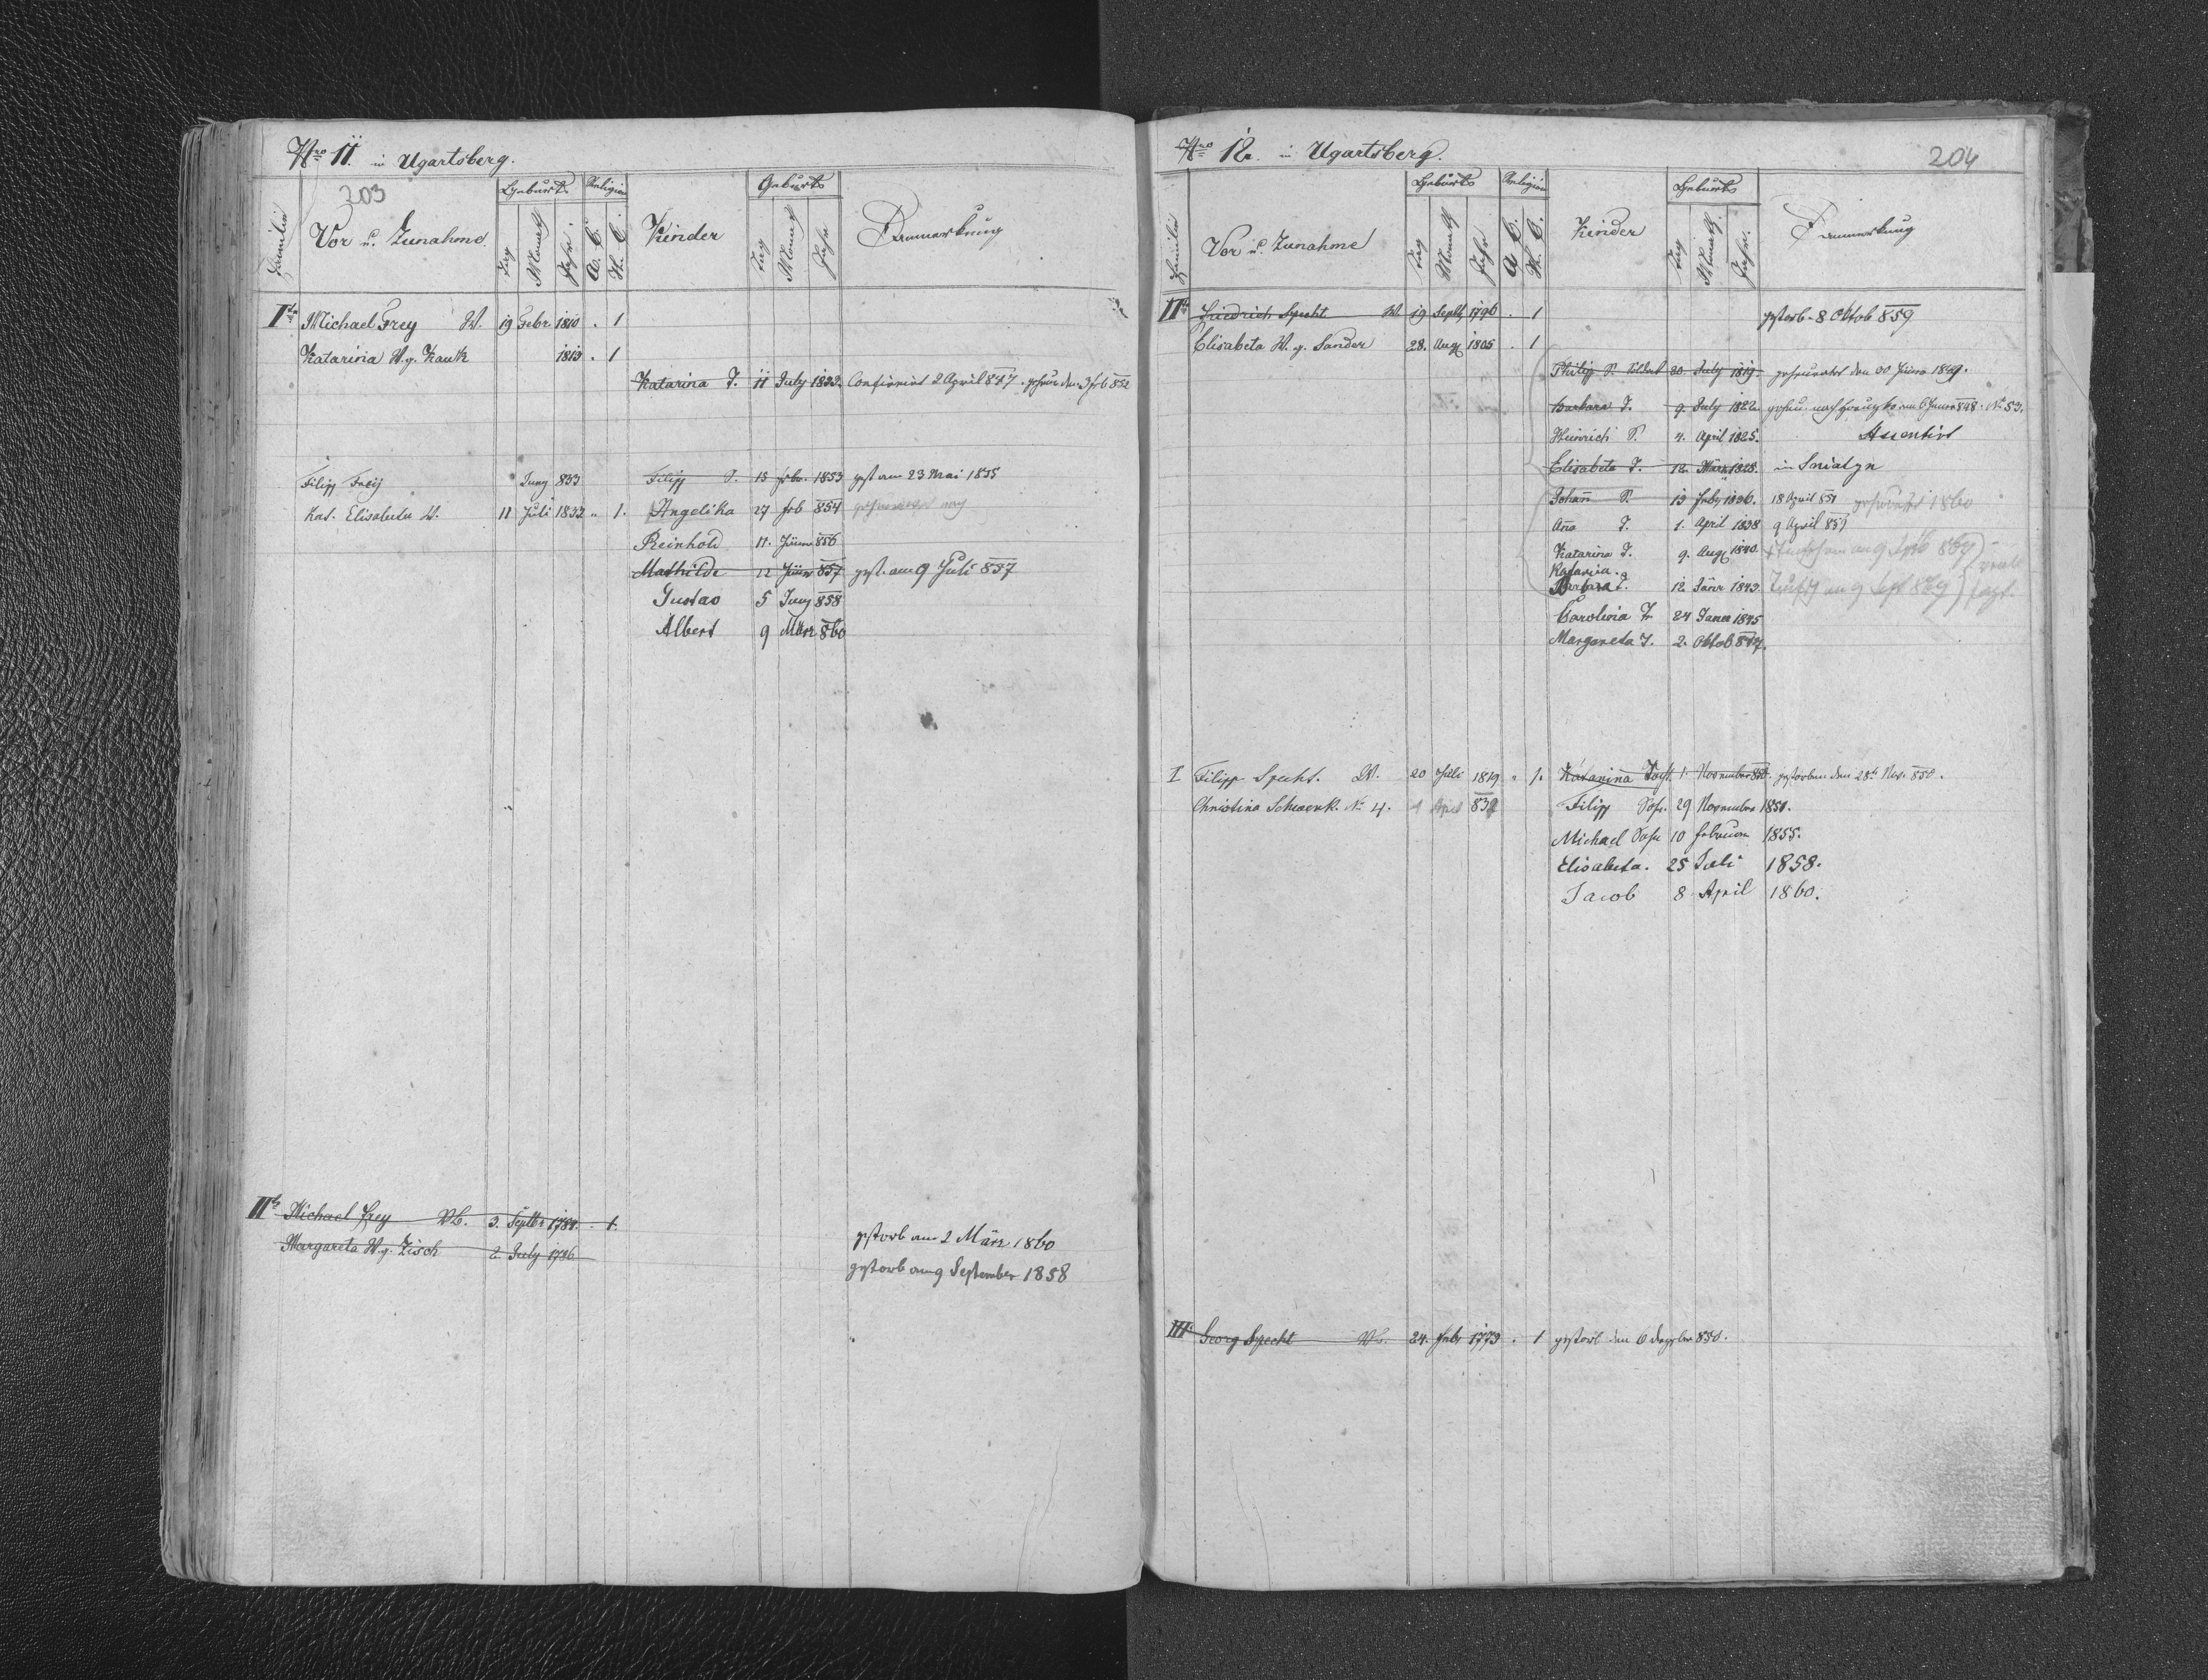 Nro 11. in Ugartsberg.
203
Familie Vor u. Zunahme Geburts Tag Monath Jahr. Religion A. C. H. C. Kinder Geburts Tag Monath Jahr Anmerkung
Ite Michael Frey W. 19 Febr. 1810 . 1
Katarina W. g. Kauk 1813 . 1
Katarina T. 11 July 1833. Confirmirt 2 April 847. den 3 feb 852
Filipp Freÿ Juny 833 Filipp S. 15 1853 gest am 23 Mai 1855
Kat. Elisabetha W. 11 Juli 1833 " 1. Angelika 27 feb 854
Reinhold 11. Jänner 856
Mathilde 12 Jänner 857 gest. am 9 Juli 857
Gustav 5 Juny 858
Albert 9 März 860
IIte Michael Frey Wb. 3. Septbr 1784. . 1.
Margareta W. g. Zisch 2. July 1786
gestorb am 2 März 1860
gestorb am 9 September 1858
Nro 12. in Ugartsberg.
204
Familie Vor u. Zunahme Geburts Tag Monath Jahr Religion A. C. H. C. Kinder Geburts Tag Monath Jahr. Anmerkung
IIte Friedrich Specht W. 19 Septb 1796 . 1 gestorb. 8 Oktob 859
Elisabeta W. g. Sander 28. Aug 1805 . 1
Philipp S. Soldat 20. July 1819. geheurathet den 30 Jänner 1849.
Barbara T. 9. July 1822. 6 Janner 848. No 53.
Heinrich S. 4. April 1825. Assentirt
Elisabeta T. 12. März 1828. in Sniatyn
Johann S. 13 1836. 18 April 851 geheurathet 1860
Ana T. 1. April 1838 9 April 851
Katarina T. 9. Aug 1840.
Katarina.
Barbara T. 12 Jäner 1843.
Carolina T. 24 Janer 1845
Margareta T. 2. Oktob 847.
I Filipp Specht. W. 20 Juli 1819 " 1. Katarina Tocht. 1. November 850. gestorben den 28t Nov. 850.
Christina Schwenk. No 4. 1 April 832 Filipp Sohn. 29 November 1851.
Michael Sohn 10 februar 1855.
Elisabeta. 25 Juli 1858.
Jacob 8 April 1860.
III. Georg Specht Wb. 24. Febr 1773 . 1 gestorb den 6 850.